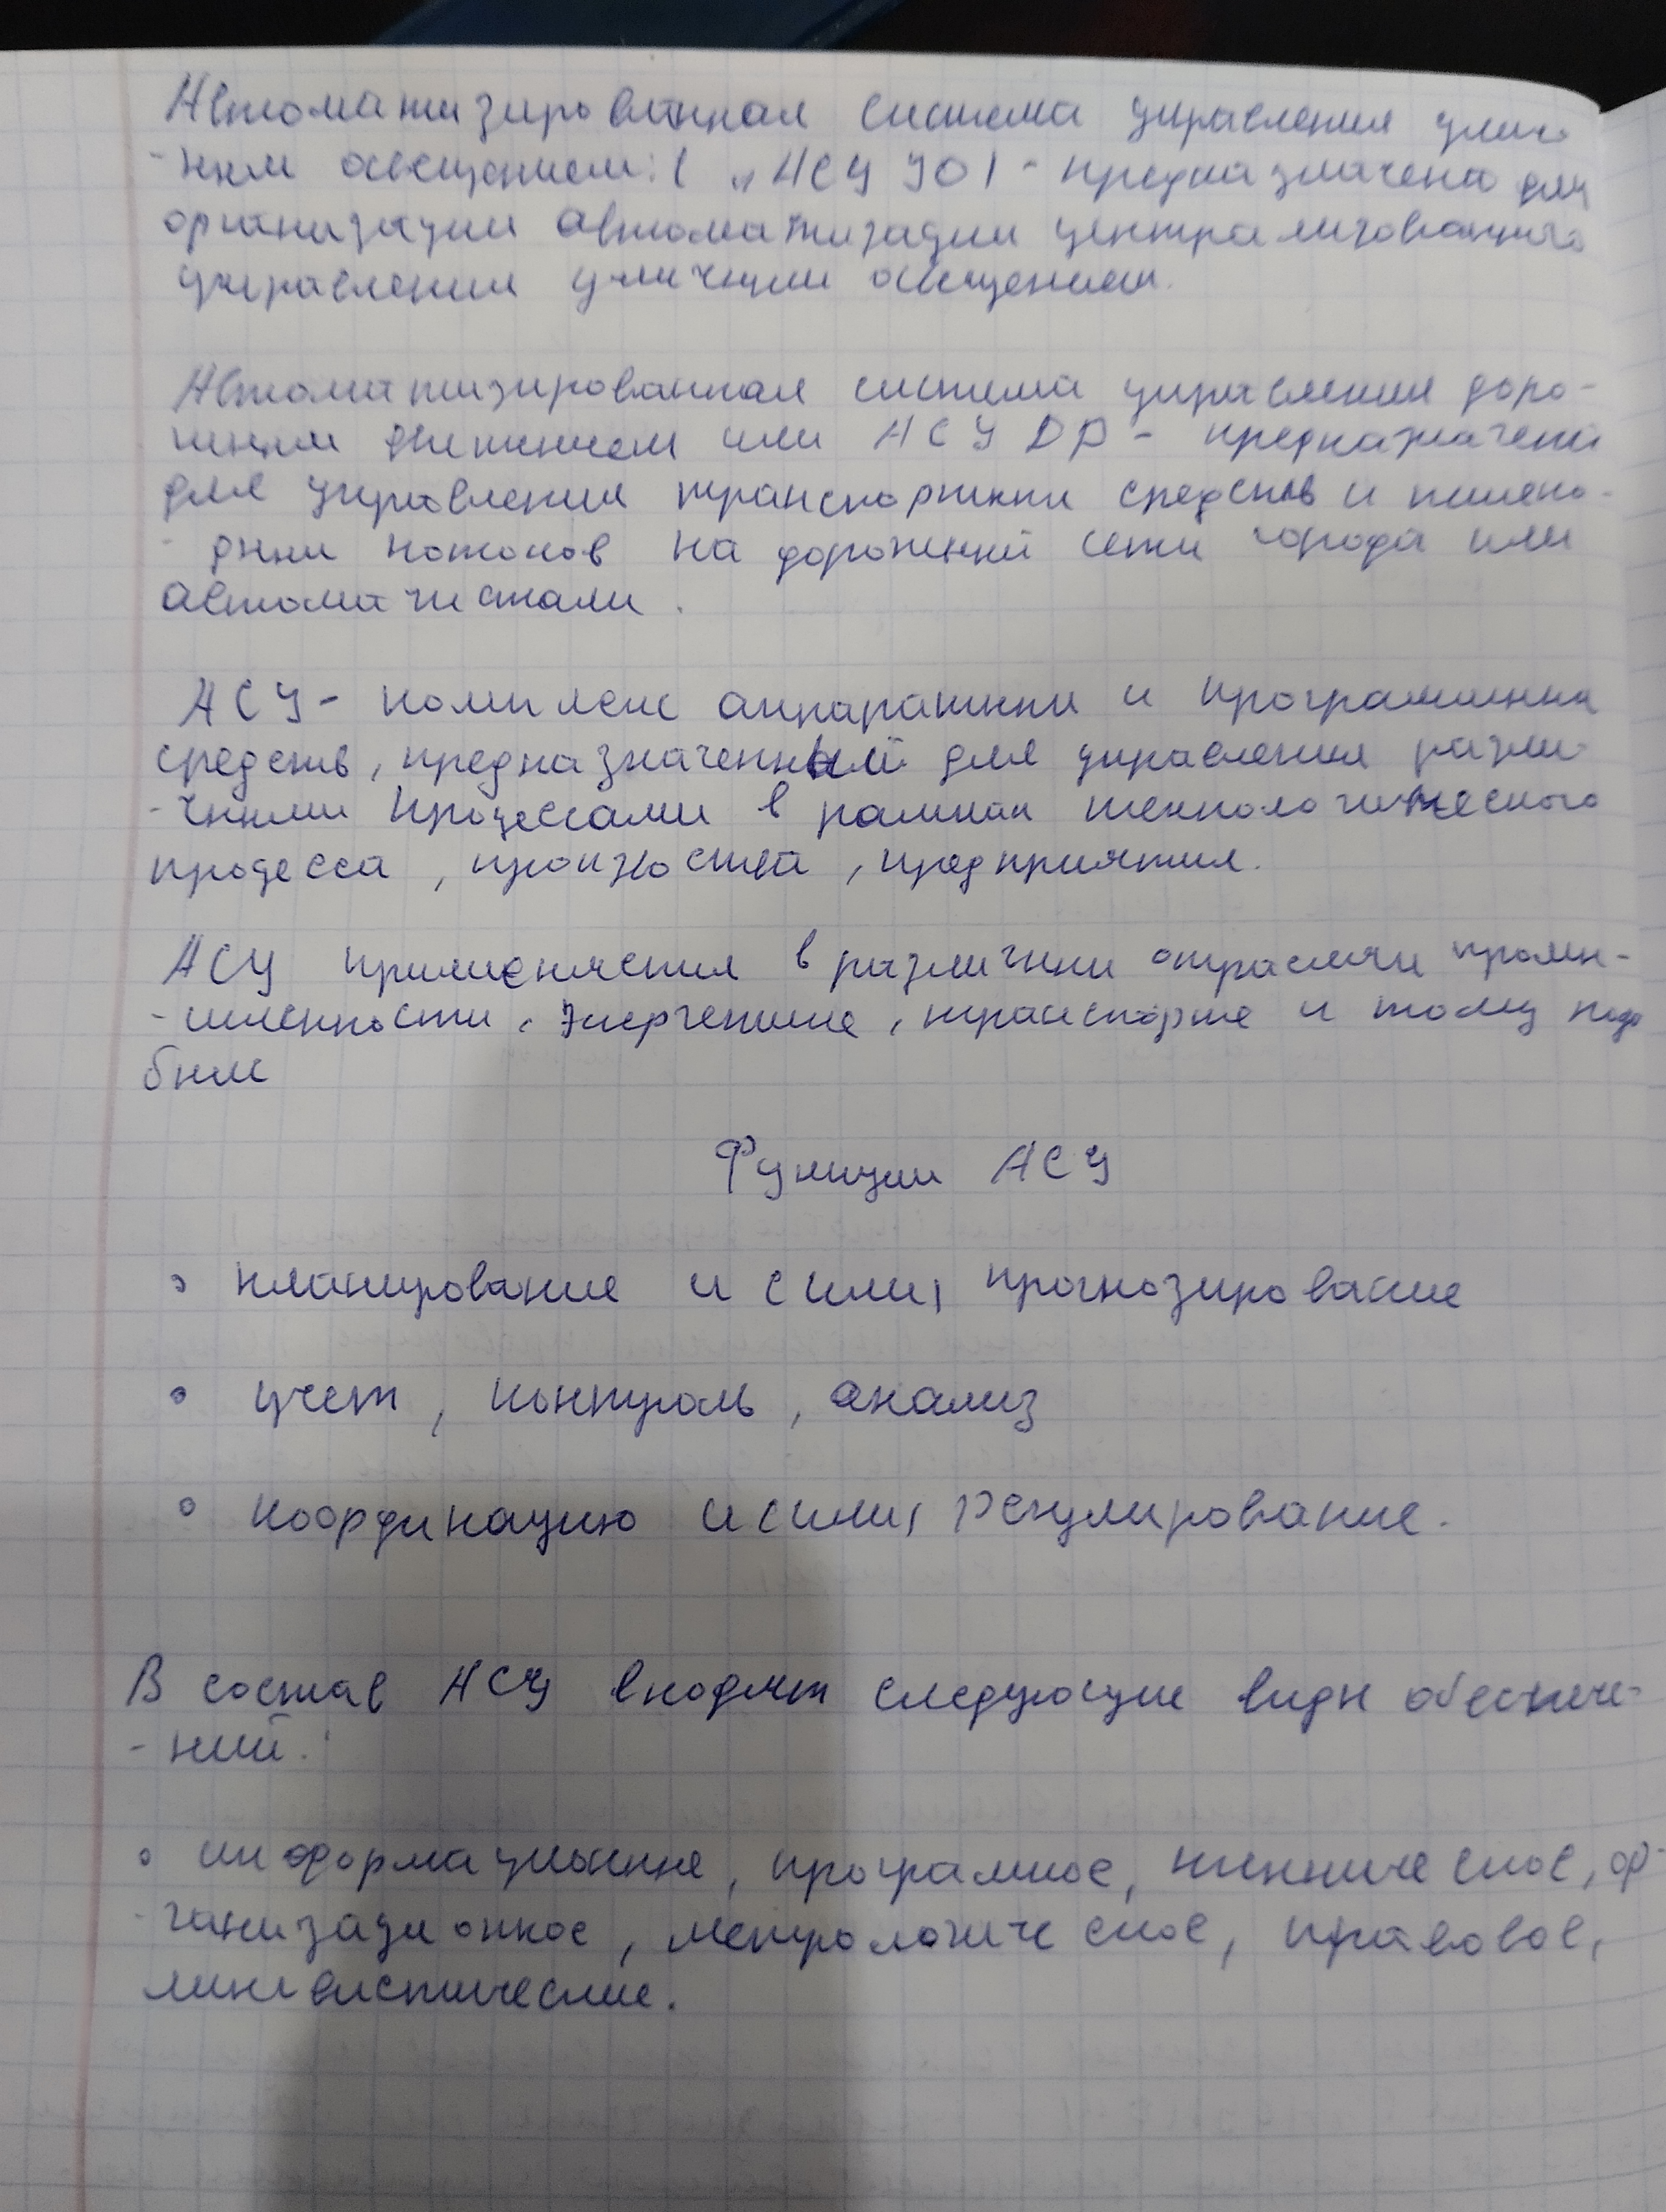 Автоматизированная система управления улич-
-ным освещением: ( "АСУ УО) - предназначена для
организации автоматизации централизованного
управления уличным освещением.
Автоматизированная система управления доро-
жным движением или АСУ ДД - предназначена
для управления транспортных средств и пешехо-
- дных потоков на дорожной сети города или
автомагистрали.
АСУ - комплекс аппаратных и программных
средств, предназначенный для управления разли-
-чными процессами в рамках технологического
процесса, производства, предприятия.
АСУ применяется в различных отраслях промы-
-шленности, энергетике, транспорте и тому подо
бным
Функции АСУ
• планирование и (или) прогнозирование
• учет, контроль, анализ
• координацию и (или) регулирование.
В состав АСУ входят следующие виды обеспече-
- ний:
• информационные, програмное, техническое, ор-
-ганизационное, метрологическое, правовое,
лингвистические.